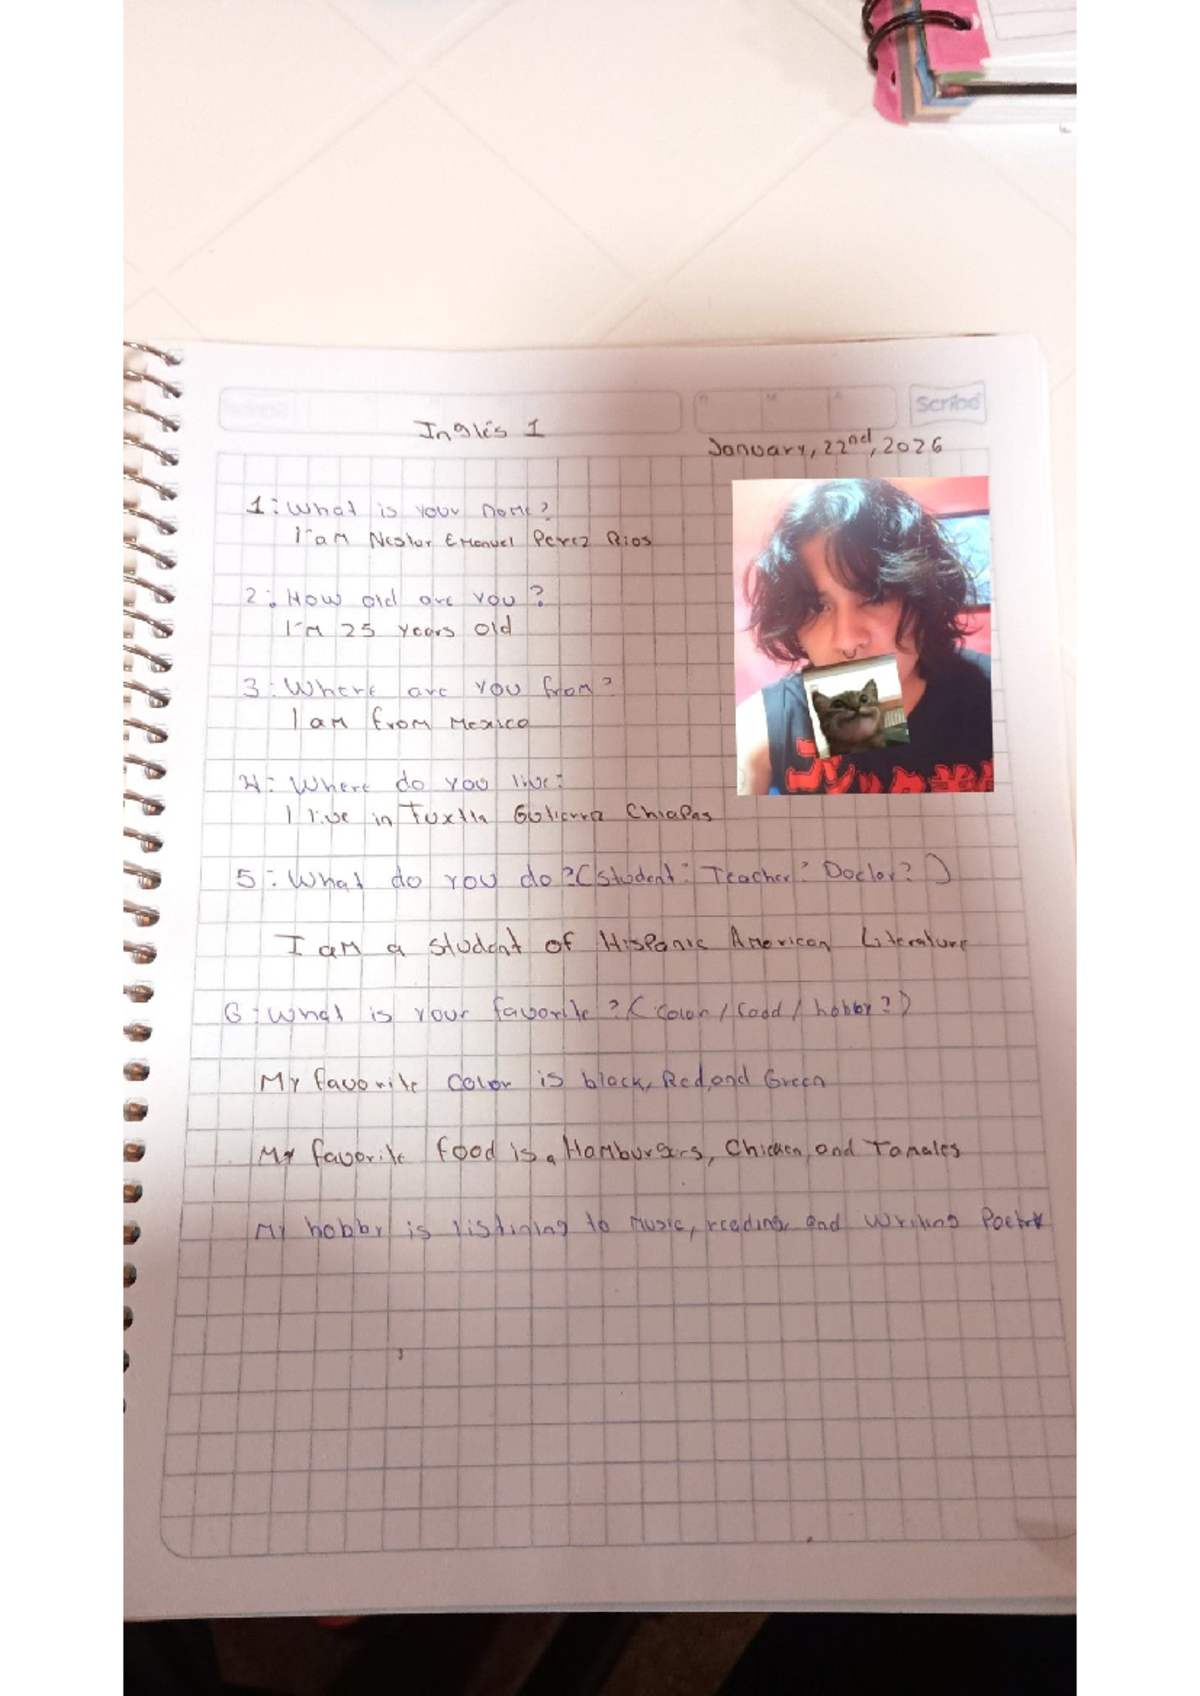 Scribe
Inglés 1
January, 22nd, 2026
1: What is your name?
I am Nestor Emanuel Perez Rios
2: How old are you?
I'm 25 years old
3: Where are you from?
I am from Mexico
4: Where do you live?
I live in Tuxtla Gutierrez Chiapas
5: What do you do? (Student? Teacher? Doctor?)
I am a student of Hispanic American Literature
6: What is your favorite? (Color / food / hobby?)
My favorite color is black, Red, and Green
My favorite food is a Hamburgers, Chicken, and Tamales
My hobby is listining to music, reading and writing Poetry